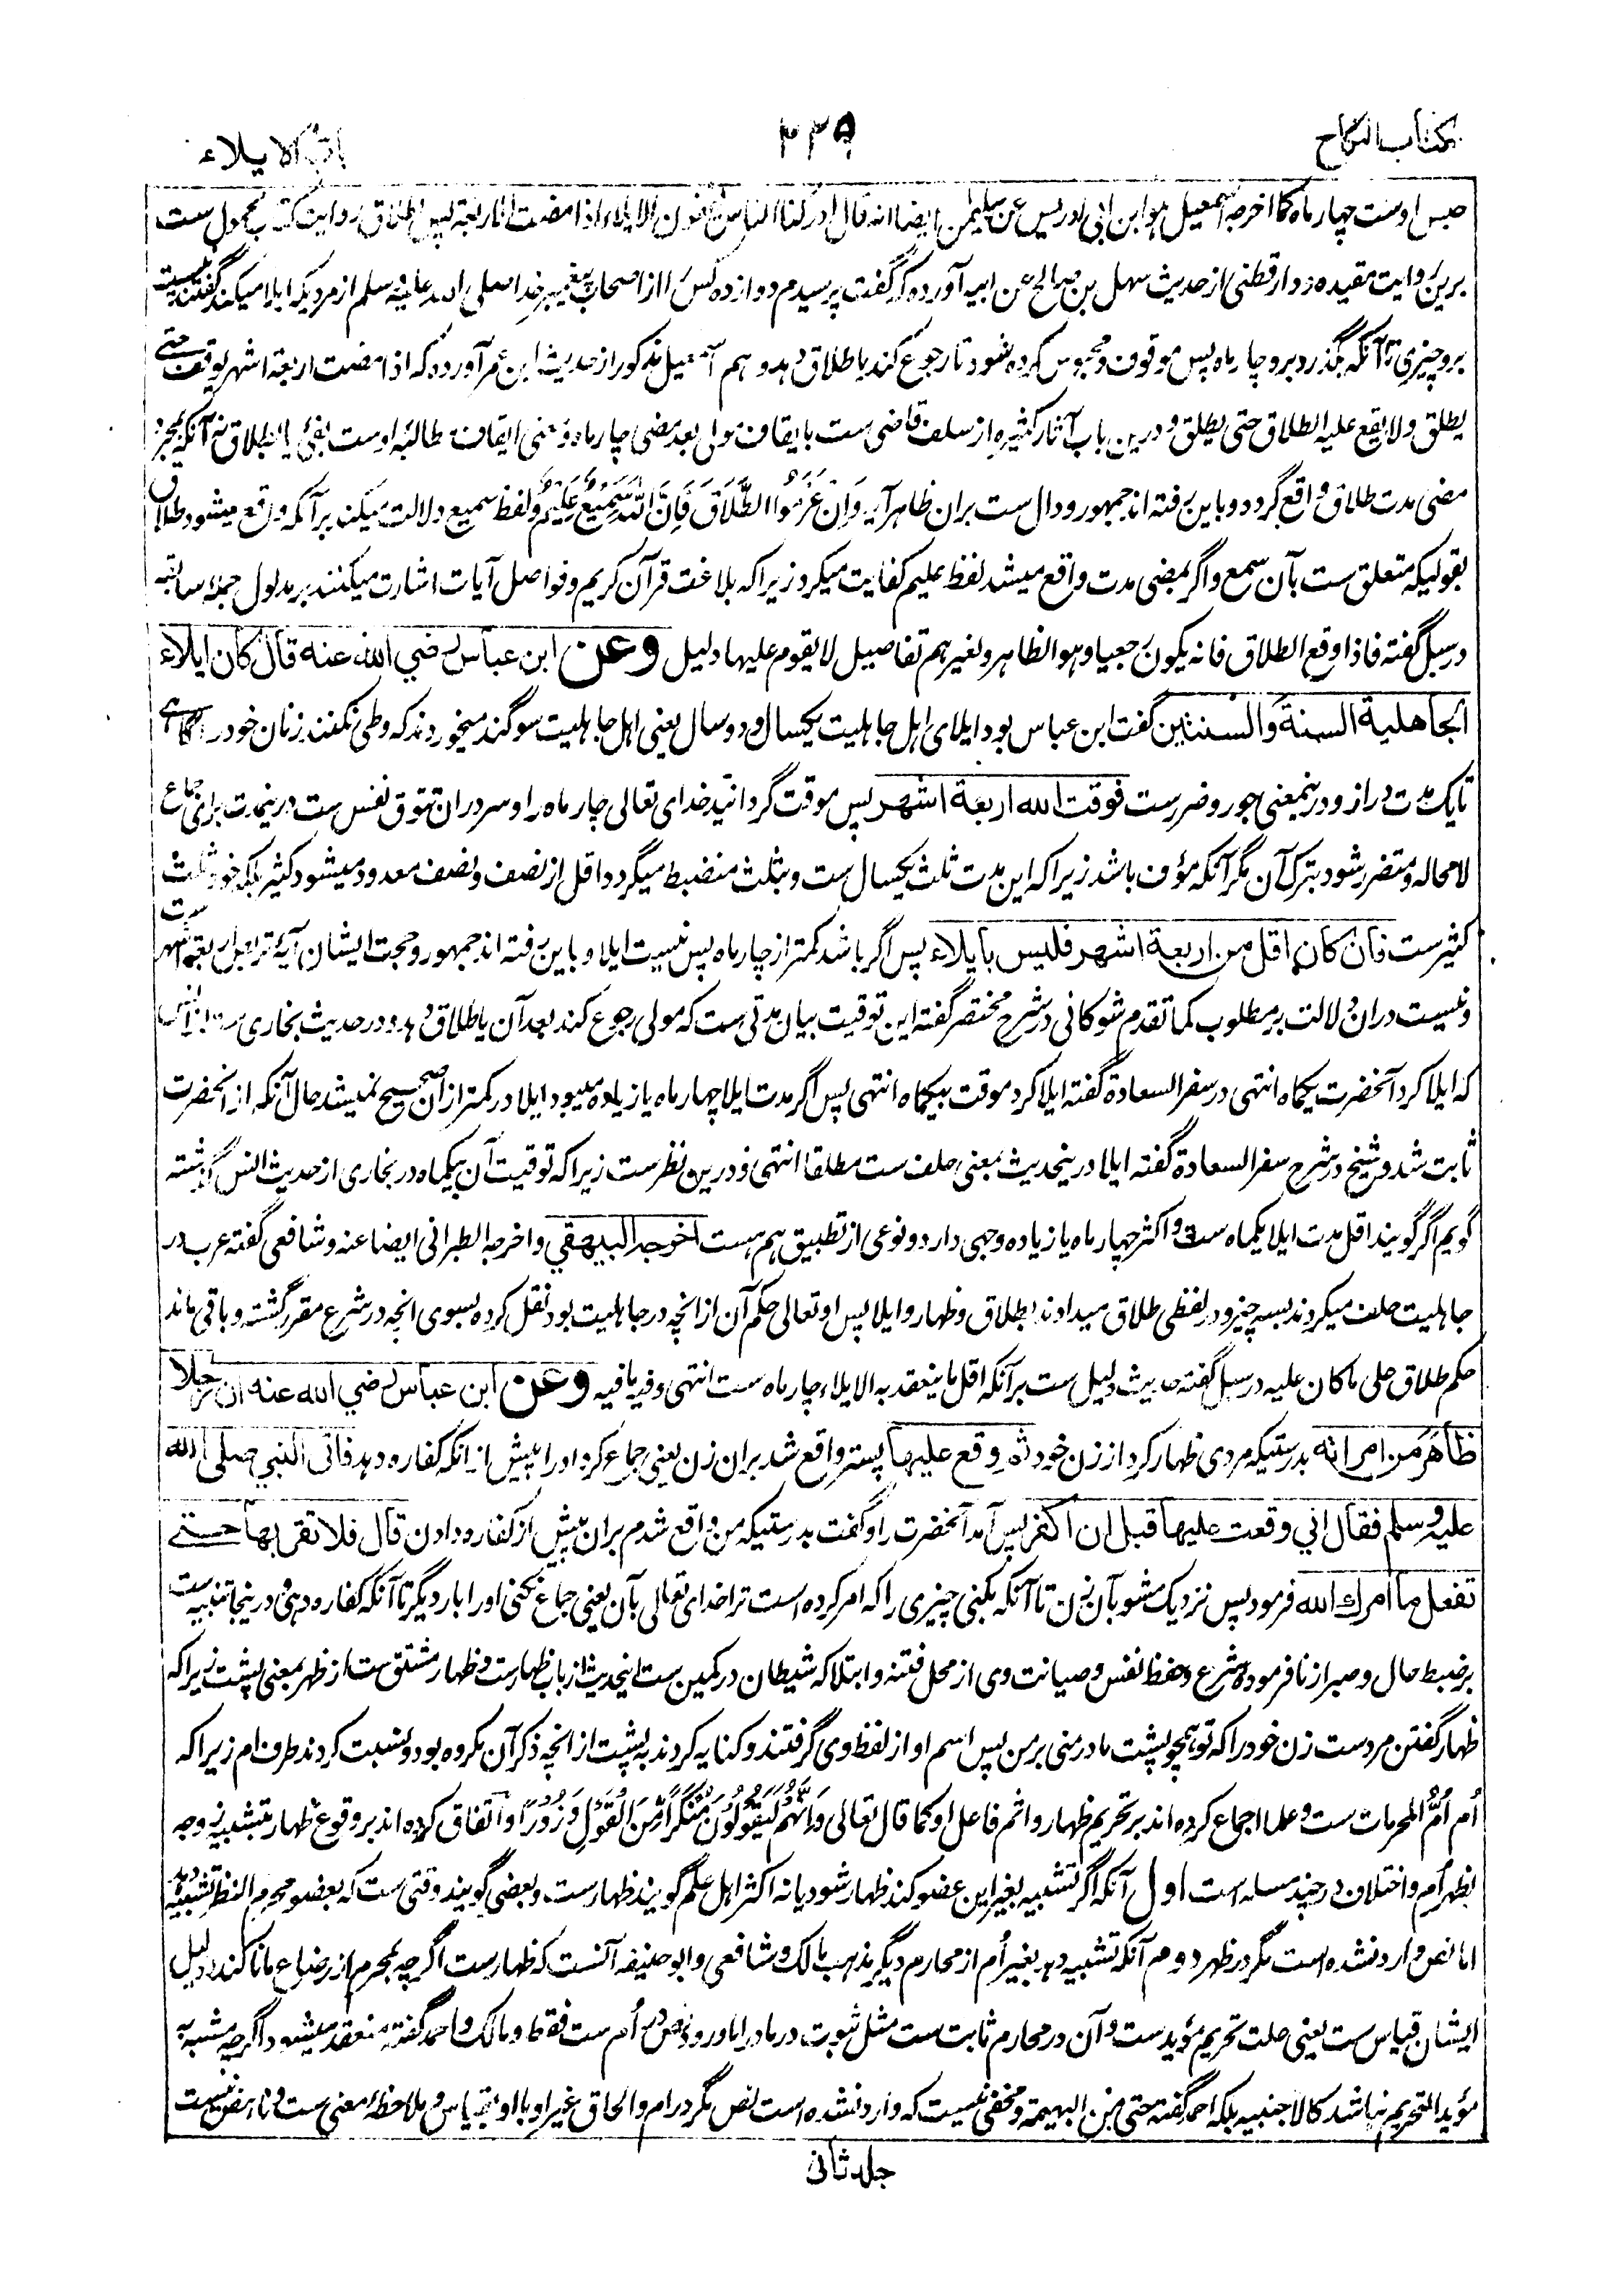 کتاب النکاح
۲۲۵
باب الایلاء
حبس اوست چهار ماه کما اخرجه اسمعیل هو ابن ابی ادریس عن سلیمن ایضا انه قال ادرکنا الناس یقفون الایلاء اذا مضت الاربعة پس اطلاق روایت کتاب محمول ست
برین روایت مقیده و دارقطنی از حدیث سهل بن صالح عن ابیه آورده که گفت پرسیدم دوازده کس را از اصحاب پیغمبر خدا صلی الله علیه وسلم از مردیکه ایلا میکند گفتند نیست
برو چیزی تا آنکه بگذرد برو چار ماه پس موقوف و محبوس کرده شود تا رجوع کند یا طلاق دهد و هم اسمعیل مذکور از حدیث ابن عمر آورده که اذا مضت اربعة اشهر یوقف حتی
یطلق ولا یقع علیه الطلاق حتی یطلق و درین باب آثار کثیره از سلف قاضی ست بایقاف مولی بعد مضی چار ماه و معنی ایقاف مطالبه اوست بفئ یا بطلاق نه آنکه بمجرد
مضی مدت طلاق واقع گردد و باین رفته اند جمهور و دال ست بران ظاهر آیه وَاِنْ عَزَمُوا الطَّلَاقَ فَاِنَّ اللّٰهَ سَمِیْعٌ عَلِیْمٌ و لفظ سمیع دلالت میکند بر آنکه واقع میشود طلاق
بقولیکه متعلق ست بآن سمع و اگر بمضی مدت واقع میشد لفظ علیم کفایت میکرد زیرا که بلاغت قرآن کریم و فواصل آیات اشارت میکنند بر مدلول جمله سابقه
در سبل گفته فاذا وقع الطلاق فانه یکون رجعیا وهو الظاهر ولغیرهم تفاصیل لا یقوم علیها دلیل وعن ابن عباس رضي الله عنه قال كان ايلاء
الجاهلية السنة والسنتين گفت ابن عباس بود ایلای اهل جاهلیت یکسال و دو سال یعنی اهل جاهلیت سوگند میخوردند که وطی نکنند زنان خود را گاهی
تا یک مدت دراز و درینمعنی جور و ضرر ست فوقت الله اربعة اشهر پس موقت گردانید خدای تعالی چار ماه را و سر دران توق نفس ست درینمدت برای جماع
لا محاله و متضرر شود بترک آن مگر آنکه مؤف باشد زیرا که این مدت ثلث یکسال ست و بثلث منضبط میگردد اقل از نصف و نصف معدود میشود کثیر بلکه خود ثلث
کثیر ست فان كان اقل من اربعة اشهر فليس بايلاء پس اگر باشد کمتر از چار ماه پس نیست ایلا و باین رفته اند جمهور و حجت ایشان آیه تربص اربعة اشهر ست
و نیست دران دلالت بر مطلوب کما تقدم شوکانی در شرح مختصر گفته این توقیت بیان مدتی ست که مولی رجوع کند بعد آن یا طلاق دهد و در حدیث بخاری ست از انس
که ایلا کرد آنحضرت یکماه انتهی در سفر السعادة گفته ایلا کرد موقت بیکماه انتهی پس اگر مدت ایلا چهار ماه یا زیاده میبود ایلا در کمتر ازان صحیح نمیشد حال آنکه از آنحضرت
ثابت شد و شیخ در شرح سفر السعادة گفته ایلا درینحدیث بمعنی حلف ست مطلقا انتهی و درین نظر ست زیرا که توقیت آن بیکماه در بخاری از حدیث انس گذشته
گویم اگر گویند اقل مدت ایلا یکماه ست و اکثر چهار ماه یا زیاده وجهی دارد و نوعی از تطبیق هم هست اخرجه البيهقي و اخرجه الطبرانی ایضا عنه و شافعی گفته عرب در
جاهلیت حلف میکردند بسه چیز و در لفظی طلاق میدادند بطلاق و ظهار و ایلا پس او تعالی حکم آن از انچه در جاهلیت بود نقل کرده بسوی انچه در شرع مقرر گشته و باقی ماند
حکم طلاق علی ما کان علیه در سبل گفته حدیث دلیل ست بر آنکه اقل ما ینعقد به الایلاء چار ماه ست انتهی وفیه ما فیه وعن ابن عباس رضي الله عنه ان رجلا
ظاهر من امرأته بدرستیکه مردی ظهار کرد از زن خود ثم وقع عليها پستر واقع شد بران زن یعنی جماع کرد او را پیش از انکه کفاره دهد فاتى النبي صلى الله
عليه وسلم فقال اني وقعت عليها قبل ان اكفر پس آمد آنحضرت را و گفت بدرستیکه من واقع شدم بران پیش از کفاره دادن قال فلا تقربها حتى
تفعل ما امرك الله فرمود پس نزدیک مشو بآن زن تا آنکه بکنی چیزی را که امر کرده است ترا خدای تعالی بآن یعنی جماع نکنی او را بار دیگر تا آنکه کفاره دهی و درینجا تنبیه ست
بر ضبط حال و صبر از نافرموده شرع و حفظ نفس و صیانت وی از محل فتنه و ابتلا که شیطان در کمین ست اینحدیث از باب ظهار ست و ظهار مشتق ست از ظهر بمعنی پشت زیرا که
ظهار گفتن مرد ست زن خود را که تو همچو پشت مادر منی بر من پس اسم او از لفظ وی گرفتند و کنایه کردند به پشت از انچه ذکر آن مکروه بود و نسبت کردند طرف ام زیرا که
اُم اُمُّ المحرمات ست و علما اجماع کرده اند بر تحریم ظهار و اثم فاعل او کما قال تعالی وَاِنَّهُمْ لَیَقُوْلُوْنَ مُنْکَرًا مِّنَ الْقَوْلِ وَزُوْرًا و اتفاق کرده اند بر وقوع ظهار بتشبیه زوجه
بظهر اُم و اختلاف در چند مسله است اول آنکه اگر تشبیه بغیر این عضو کند ظهار شود یا نه اکثر اهل علم گویند ظهار ست و بعضی گویند وقتی ست که بعضو محرم النظر تشبیه دهد
اما نص وارد نشده است مگر در ظهر دوم آنکه تشبیه دهد بغیر اُم از محارم دیگر مذهب مالک و شافعی و ابوحنیفه آنست که ظهار ست اگرچه بمحرم از رضاع مانا کند دلیل
ایشان قیاس ست یعنی علت تحریم مؤید ست و آن در محارم ثابت ست مثل ثبوت در مادر اما ورود نص در اُم ست فقط و مالک و احمد گفته منعقد میشود اگرچه مشبه به
مؤید التحریم نباشد کالاجنبیه بلکه احمد گفته حتی من البهیمة و مخفی نیست که وارد نشده است نص مگر در ام و الحاق غیر او با او بقیاس و ملاحظه معنی ست و ناهض نیست
جلد ثانی